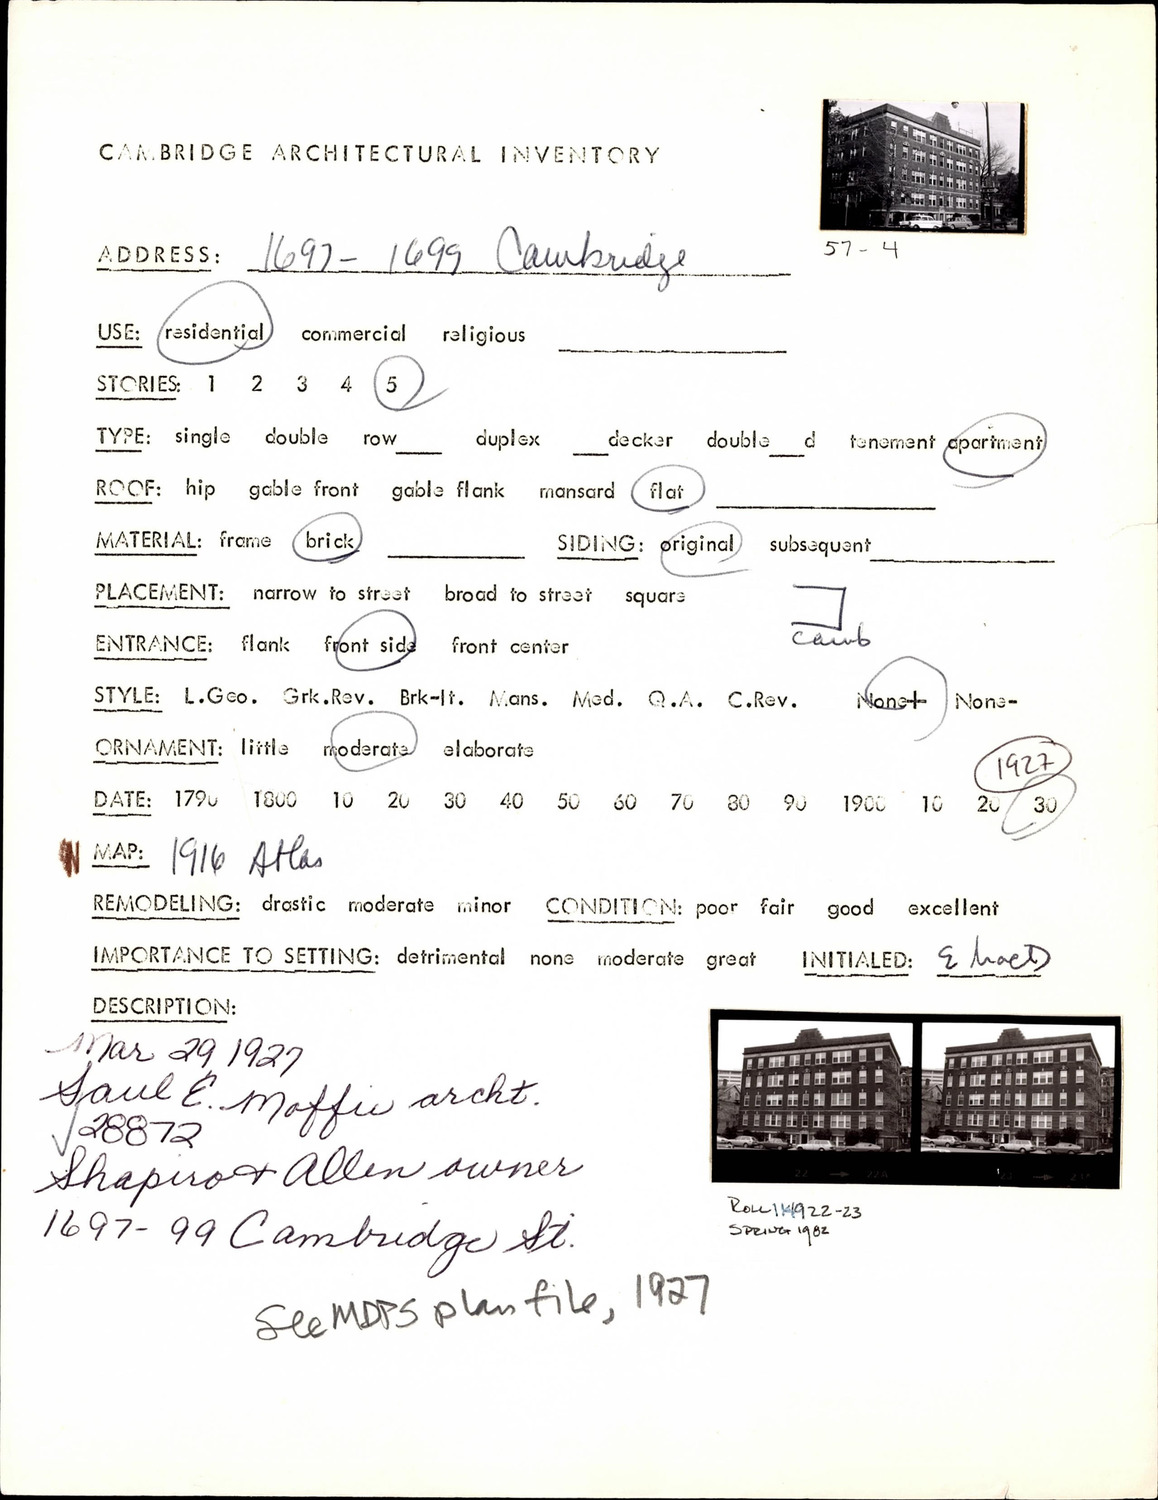 CAMBRIDGE ARCHITECTURAL INVENTORY
57-4
ADDRESS: 1697-1699 Cambridge
USE: residential commercial religious
STORIES: 1 2 3 4 5
TYPE: single double row___ duplex ___decker double___d tenement apartment
ROOF: hip gable front gable flank mansard flat
MATERIAL: frame brick ___ SIDING: original subsequent
PLACEMENT: narrow to street broad to street square
Camb
ENTRANCE: flank front side front center
STYLE: L.Geo. Grk.Rev. Brk-It. Mans. Med. Q.A. C.Rev. None+ None-
ORNAMENT: little moderate elaborate
1927
DATE: 1790 1800 10 20 30 40 50 60 70 80 90 1900 10 20 30
MAP: 1916 Atlas
REMODELING: drastic moderate minor CONDITION: poor fair good excellent
IMPORTANCE TO SETTING: detrimental none moderate great INITIALED:
DESCRIPTION:
Mar 29 1927
Saul E. Moffie archt.
28872
Shapiro & Allen owner
1697-99 Cambridge St.
See MDPS plan file, 1927
22 22A
23
Roll 22-23
SPRING 1982